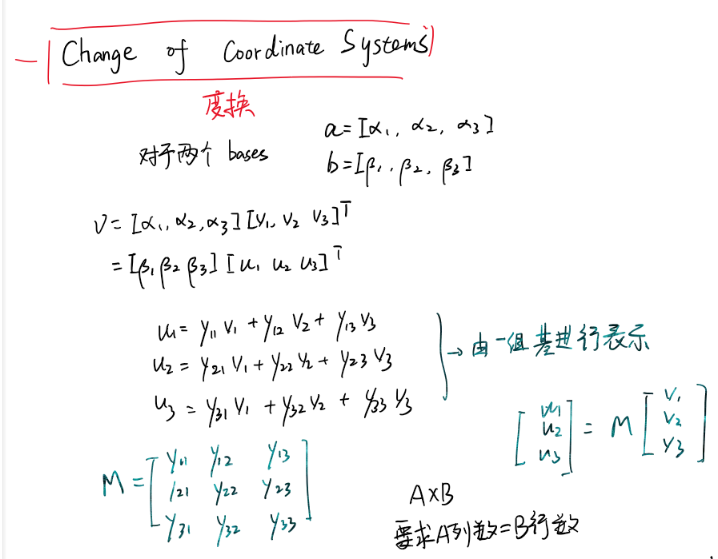 Change of Coordinate Systems
度换
对于两个 bases
a=[α₁, α₂, α₃]
b=[β₁, β₂, β₃]
V=[α₁, α₂, α₃][V₁, V₂ V₃]ᵀ
=[β₁ β₂ β₃][u₁ u₂ u₃]ᵀ
u₁= y₁₁ V₁ + y₁₂ V₂ + y₁₃ V₃
u₂= y₂₁ V₁ + y₂₂ V₂ + y₂₃ V₃
u₃ = y₃₁ V₁ + y₃₂ V₂ + y₃₃ V₃
→ 由一组基进行表示
[u₁ u₂ u₃] = M [V₁ V₂ V₃]
M = [y₁₁ y₁₂ y₁₃
y₂₁ y₂₂ y₂₃
y₃₁ y₃₂ y₃₃]
A×B
要求A列数=B行数